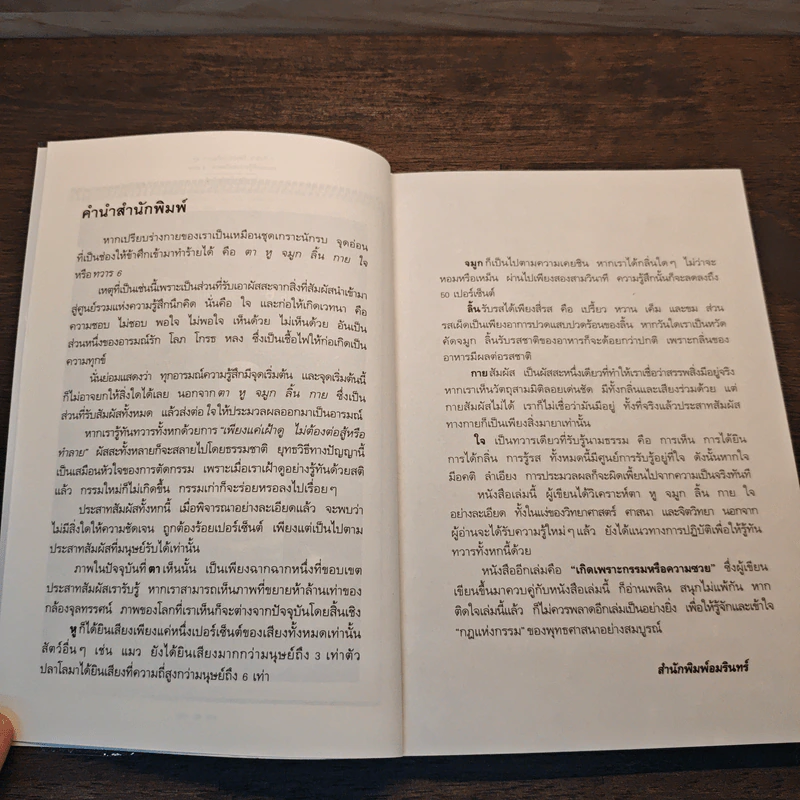 คำนำสำนักพิมพ์
หากเปรียบร่างกายของเราเป็นเหมือนชุดเกราะนักรบ จุดอ่อน
ที่เป็นช่องให้ข้าศึกเข้ามาทำร้ายได้ คือ ตา หู จมูก ลิ้น กาย ใจ
หรือ ทวาร 6
เหตุที่เป็นเช่นนี้เพราะเป็นส่วนที่รับเอาผัสสะจากสิ่งที่สัมผัสนำเข้ามา
สู่ศูนย์รวมแห่งความรู้สึกนึกคิด นั่นคือ ใจ และก่อให้เกิดเวทนา คือ
ความชอบ ไม่ชอบ พอใจ ไม่พอใจ เห็นด้วย ไม่เห็นด้วย อันเป็น
ส่วนหนึ่งของอารมณ์รัก โลภ โกรธ หลง ซึ่งเป็นเชื้อไฟให้ก่อเกิดเป็น
ความทุกข์
นั่นย่อมแสดงว่า ทุกอารมณ์ความรู้สึกมีจุดเริ่มต้น และจุดเริ่มต้นนี้
ก็ไม่อาจยกให้สิ่งใดได้เลย นอกจาก ตา หู จมูก ลิ้น กาย ซึ่งเป็น
ส่วนที่รับสัมผัสทั้งหมด แล้วส่งต่อ ใจ ให้ประมวลผลออกมาเป็นอารมณ์
หากเรารู้ทันทวารทั้งหกด้วยการ "เพียงแค่เฝ้าดู ไม่ต้องต่อสู้หรือ
ทำลาย" ผัสสะทั้งหลายก็จะสลายไปโดยธรรมชาติ ยุทธวิธีทางปัญญานี้
เป็นเสมือนหัวใจของการตัดกรรม เพราะเมื่อเราเฝ้าดูอย่างรู้ทันด้วยสติ
แล้ว กรรมใหม่ก็ไม่เกิดขึ้น กรรมเก่าก็จะร่อยหรอลงไปเรื่อยๆ
ประสาทสัมผัสทั้งหกนี้ เมื่อพิจารณาอย่างละเอียดแล้ว จะพบว่า
ไม่มีสิ่งใดให้ความชัดเจน ถูกต้องร้อยเปอร์เซ็นต์ เพียงแต่เป็นไปตาม
ประสาทสัมผัสที่มนุษย์รับได้เท่านั้น
ภาพในปัจจุบันที่ ตา เห็นนั้น เป็นเพียงฉากฉากหนึ่งที่ขอบเขต
ประสาทสัมผัสเรารับรู้ หากเราสามารถเห็นภาพที่ขยายห้าล้านเท่าของ
กล้องจุลทรรศน์ ภาพของโลกที่เราเห็นก็จะต่างจากปัจจุบันโดยสิ้นเชิง
หู ก็ได้ยินเสียงเพียงแค่หนึ่งเปอร์เซ็นต์ของเสียงทั้งหมดเท่านั้น
สัตว์อื่นๆ เช่น แมว ยังได้ยินเสียงมากกว่ามนุษย์ถึง 3 เท่าตัว
ปลาโลมาได้ยินเสียงที่ความถี่สูงกว่ามนุษย์ถึง 6 เท่า
จมูก ก็เป็นไปตามความเคยชิน หากเราได้กลิ่นใดๆ ไม่ว่าจะ
หอมหรือเหม็น ผ่านไปเพียงสองสามวินาที ความรู้สึกนั้นก็จะลดลงถึง
50 เปอร์เซ็นต์
ลิ้น รับรสได้เพียงสี่รส คือ เปรี้ยว หวาน เค็ม และขม ส่วน
รสเผ็ดเป็นเพียงอาการปวดแสบปวดร้อนของลิ้น หากวันใดเราเป็นหวัด
คัดจมูก ลิ้นรับรสชาติของอาหารก็จะด้อยกว่าปกติ เพราะกลิ่นของ
อาหารมีผลต่อรสชาติ
กาย สัมผัส เป็นผัสสะหนึ่งเดียวที่ทำให้เราเชื่อว่าสรรพสิ่งมีอยู่จริง
หากเราเห็นวัตถุสามมิติลอยเด่นชัด มีทั้งกลิ่นและเสียงร่วมด้วย แต่
กายสัมผัสไม่ได้ เราก็ไม่เชื่อว่ามันมีอยู่ ทั้งที่จริงแล้วประสาทสัมผัส
ทางกายก็เป็นเพียงสิ่งมายาเท่านั้น
ใจ เป็นทวารเดียวที่รับรู้นามธรรม คือ การเห็น การได้ยิน
การได้กลิ่น การรู้รส ทั้งหมดนี้มีศูนย์การรับรู้อยู่ที่ใจ ดังนั้นหากใจ
มีอคติ ลำเอียง การประมวลผลก็จะผิดเพี้ยนไปจากความเป็นจริงทันที
หนังสือเล่มนี้ ผู้เขียนได้วิเคราะห์ตา หู จมูก ลิ้น กาย ใจ
อย่างละเอียด ทั้งในแง่ของวิทยาศาสตร์ ศาสนา และจิตวิทยา นอกจาก
ผู้อ่านจะได้รับความรู้ใหม่ๆ แล้ว ยังได้แนวทางการปฏิบัติเพื่อให้รู้ทัน
ทวารทั้งหกนี้ด้วย
หนังสืออีกเล่มคือ "เกิดเพราะกรรมหรือความซวย" ซึ่งผู้เขียน
เขียนขึ้นมาควบคู่กับหนังสือเล่มนี้ ก็อ่านเพลิน สนุกไม่แพ้กัน หาก
ติดใจเล่มนี้แล้ว ก็ไม่ควรพลาดอีกเล่มเป็นอย่างยิ่ง เพื่อให้รู้จักและเข้าใจ
"กฎแห่งกรรม" ของพุทธศาสนาอย่างสมบูรณ์
สำนักพิมพ์อมรินทร์